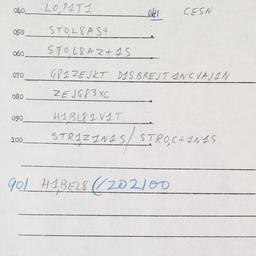 040 LO,P1T1 041 CESN
050 STOL8AS+
060 STOL8AZ+1S
070 G81ZEJKT D1SBREJT 1NCVAJ1N
080 ZEJG83XC
090 H1BL81V1T
100 STR1Z1N1S/STRO,C+1N1S
901 H1BEL8 (/202100